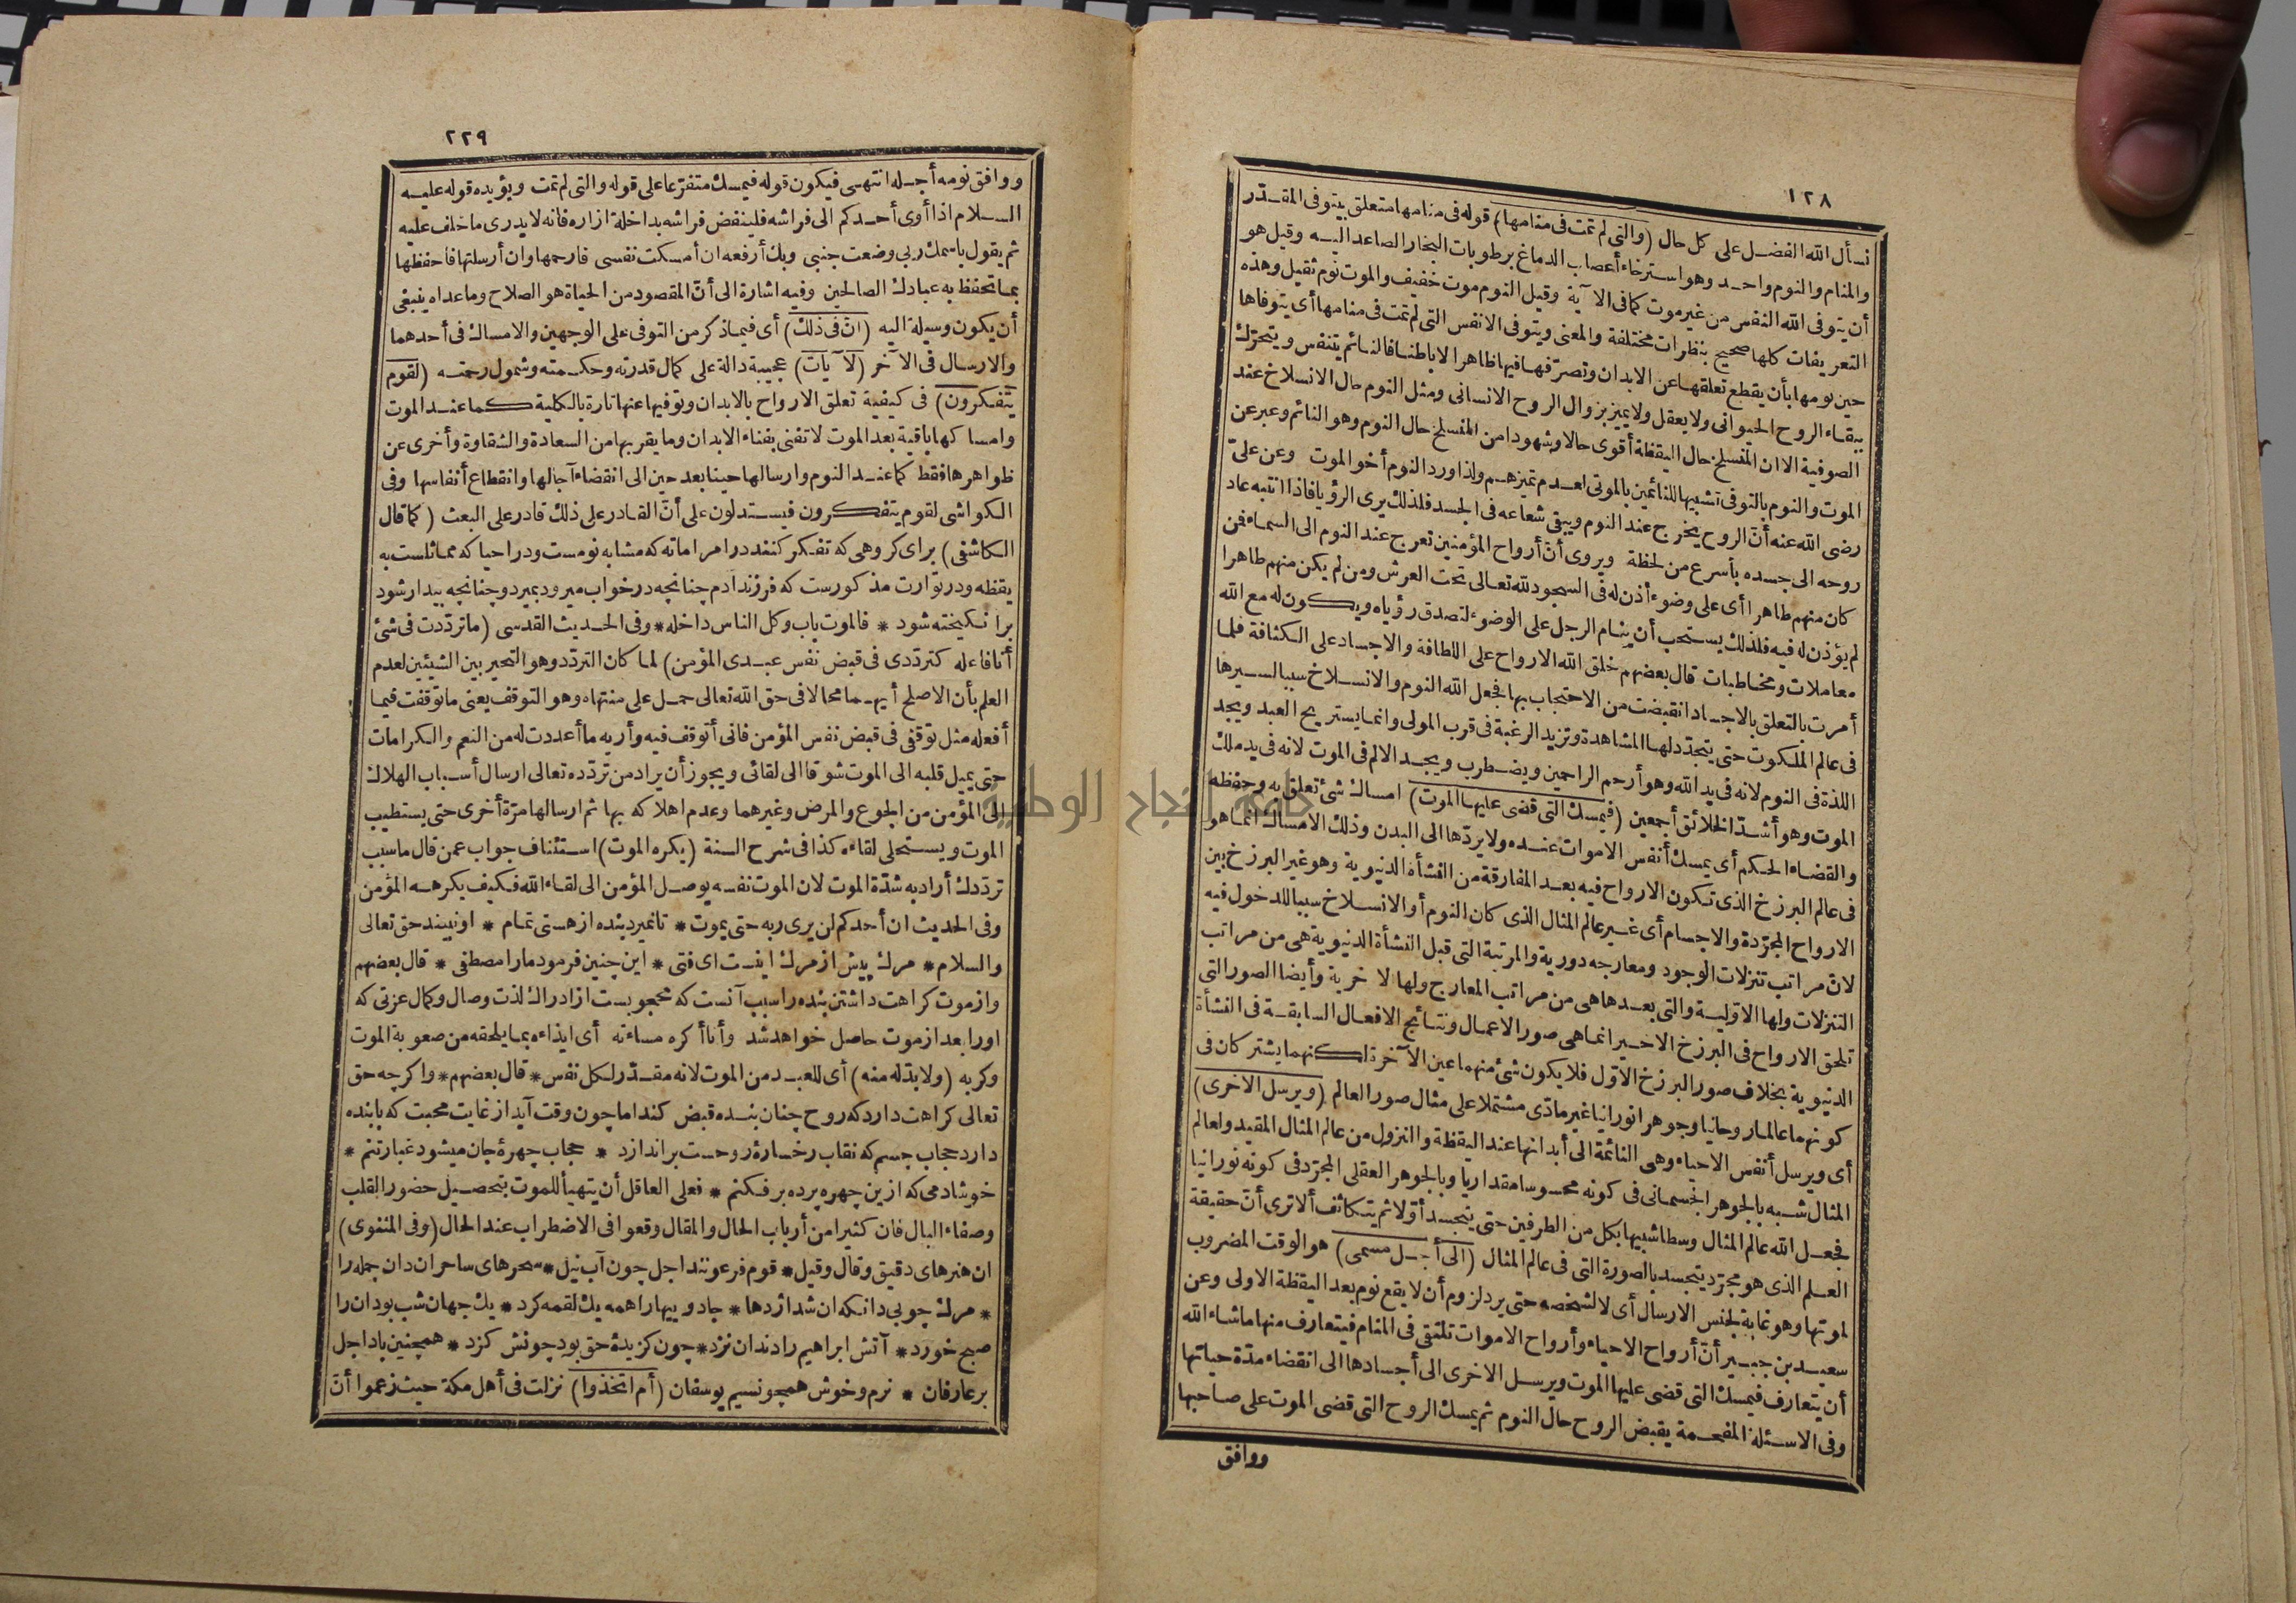 ١٢٨
نسأل الله الفضل على كل حال (والتى لم تمت فى منامها) قوله فى منامها متعلق بيتوفى المقدّر
والمنام والنوم واحد وهو استرخاء أعصاب الدماغ برطوبات البخار الصاعد اليه وقيل هو
أن يتوفى الله النفس من غير موت كما فى الآية وقيل النوم موت خفيف والموت نوم ثقيل وهذه
التعريفات كلها صحيح بنظرات مختلفة والمعنى ويتوفى الانفس التى لم تمت فى منامها أى يتوفاها
حين نومها بأن يقطع تعلقها عن الابدان وتصرّفها فيها ظاهرا لا باطنا فالنائم يتنفس ويتحرّك
ببقاء الروح الحيوانى ولا يعقل ولا يميز بزوال الروح الانسانى ومثل النوم حال الانسلاخ عند
الصوفية الا ان المنسلخ حال اليقظة أقوى حالا وشهودا من المنسلخ حال النوم وهو النائم وعبر عن
الموت والنوم بالتوفى تشبيها للنائمين بالموتى لعدم تميزهم ولذا ورد النوم أخو الموت وعن علىّ
رضى الله عنه أنّ الروح يخرج عند النوم ويبقى شعاعه فى الجسد فلذلك يرى الرؤيا فاذا انتبه عاد
روحه الى جسده بأسرع من لحظة ويروى أنّ أرواح المؤمنين تعرج عند النوم الى السماء فمن
كان منهم طاهرا أى على وضوء أذن له فى السجود لله تعالى تحت العرش ومن لم يكن منهم طاهرا
لم يؤذن له فيه فلذلك يستحب أن ينام الرجل على الوضوء لتصدق رؤياه ويكون له مع الله
معاملات ومخاطبات قال بعضهم خلق الله الارواح على اللطافة والاجساد على الكثافة فلما
أمرت بالتعلق بالاجساد انقبضت من الاحتجاب بها فجعل الله النوم والانسلاخ سببا لسيرها
فى عالم الملكوت حتى يتجدّد لها المشاهدة وتزيد الرغبة فى قرب المولى وانما يستريح العبد ويجد
اللذة فى النوم لانه فى يد الله وهو أرحم الراحمين ويضطرب ويجد الالم فى الموت لانه فى يد ملك
الموت وهو أشدّ الخلائق أجمعين (فيمسك التى قضى عليها الموت) امساك شئ تعلق به وحفظه
والقضاء الحكم أى يمسك أنفس الاموات عنده ولا يردّها الى البدن وذلك الامساك انما هو
فى عالم البرزخ الذى تكون الارواح فيه بعد المفارقة من النشأة الدنيوية وهو غير البرزخ بين
الارواح المجرّدة والاجسام أى غير عالم المثال الذى كان النوم أو الانسلاخ سببا للدخول فيه
لانّ مراتب تنزلات الوجود ومعارجه دورية والمرتبة التى قبل النشأة الدنيوية هى من مراتب
التنزلات ولها الاوّلية والتى بعدها هى من مراتب المعارج ولها الآخرية وأيضا الصور التى
تلحق الارواح فى البرزخ الاخير انما هى صور الاعمال ونتائج الافعال السابقة فى النشأة
الدنيوية بخلاف صور البرزخ الاوّل فلا يكون شئ منهما عين الآخر لكنهما يشتركان فى
كونهما عالما روحانيا وجوهرا نورانيا غير مادّى مشتملا على مثال صور العالم (ويرسل الاخرى)
أى ويرسل أنفس الاحياء وهى النائمة الى أبدانها عند اليقظة والنزول من عالم المثال المقيد ولعالم
المثال شبه بالجوهر الجسمانى فى كونه محسوسا مقداريا وبالجوهر العقلى المجرّد فى كونه نورانيا
فجعل الله عالم المثال وسطا شبيها بكل من الطرفين حتى يتجسد أوّلا ثم يتكاثف ألا ترى أنّ حقيقة
العلم الذى هو مجرّد يتجسد بالصورة التى فى عالم المثال (الى أجل مسمى) هو الوقت المضروب
لموتها وهو غاية لجنس الارسال أى لا لشخصه حتى يرد لزوم أن لا يقع نوم بعد اليقظة الاولى وعن
سعيد بن جبير أنّ أرواح الاحياء وأرواح الاموات تلتقى فى المنام فيتعارف منها ما شاء الله
أن يتعارف فيمسك التى قضى عليها الموت ويرسل الاخرى الى أجسادها الى انقضاء مدّة حياتها
وفى الاسئلة المفحمة يقبض الروح حال النوم ثم يمسك الروح التى قضى الموت على صاحبها
ووافق
٢٢٩
ووافق نومه أجله انتهى فيكون قوله فيمسك متفرّعا على قوله والتى لم تمت ويؤيده قوله عليه
السلام اذا أوى أحدكم الى فراشه فلينفض فراشه بداخلة ازاره فانه لا يدرى ما خلف عليه
ثم يقول باسمك ربى وضعت جنبى وبك أرفعه ان أمسكت نفسى فارحمها وان أرسلتها فاحفظها
بما تحفظ به عبادك الصالحين وفيه اشارة الى أنّ المقصود من الحياة هو الصلاح وما عداه ينبغى
أن يكون وسيلة اليه (انّ فى ذلك) أى فيما ذكر من التوفى على الوجهين والامساك فى أحدهما
والارسال فى الآخر (لآيات) عجيبة دالة على كمال قدرته وحكمته وشمول رحمته (لقوم
يتفكرون) فى كيفية تعلق الارواح بالابدان وتوفيها عنها تارة بالكلية كما عند الموت
وامساكها باقية بعد الموت لا تفنى بفناء الابدان وما يقربها من السعادة والشقاوة وأخرى عن
ظواهرها فقط كما عند النوم وارسالها حينا بعد حين الى انقضاء آجالها وانقطاع أنفاسها وفى
الكواشى لقوم يتفكرون فيستدلون على أنّ القادر على ذلك قادر على البعث (كما قال
الكاشفى) براى كروهى كه تفكر كنند در امر اماته كه مشابه نومست ودر احيا كه مماثلست به
يقظه ودر توارت مذكورست كه فرزند ادم چنانچه در خواب ميرود بميرد وچنانچه بيدار شود
برانكيخته شود * فالموت باب وكل الناس داخله * وفى الحديث القدسى (ما تردّدت فى شئ
أنا فاعله كتردّدى فى قبض نفس عبدى المؤمن) لما كان التردّد وهو التحير بين الشيئين لعدم
العلم بأن الاصلح أيهما محالا فى حق الله تعالى حمل على منتهاه وهو التوقف يعنى ما توقفت فيما
أفعله مثل توقفى فى قبض نفس المؤمن فانى أتوقف فيه وأريه ما أعددت له من النعم والكرامات
حتى يميل قلبه الى الموت شوقا الى لقائى ويجوز أن يراد من تردّده تعالى ارسال أسباب الهلاك
الى المؤمن من الجوع والمرض وغيرهما وعدم اهلاكه بها ثم ارسالها مرّة أخرى حتى يستطيب
الموت ويستحلى لقاءه كذا فى شرح السنة (يكره الموت) استئناف جواب عمن قال ما سبب
تردّدك أراد به شدّة الموت لان الموت نفسه يوصل المؤمن الى لقاء الله فكيف يكرهه المؤمن
وفى الحديث ان أحدكم لن يرى ربه حتى يموت * تا نميرد بنده از هستى تمام * او نبيند حق تعالى
والسلام * مرك پيش از مرك اينست اى فتى * اين چنين فرمود ما را مصطفى * قال بعضهم
واز موت كراهت داشتن بنده را سبب آنست كه محجوبست از ادراك لذت وصال وكمال عزتى كه
اورا بعد از موت حاصل خواهد شد وأنا أكره مساءته أى ايذاءه بما يلحقه من صعوبة الموت
وكربه (ولا بدّ له منه) أى للعبد من الموت لانه مقدّر لكل نفس * قال بعضهم * واكرچه حق
تعالى كراهت دارد كه روح چنان بنده قبض كند اما چون وقت آيد از غايت محبت كه با بنده
دارد حجاب جسم كه نقاب رخسارۀ روحست براندازد * حجاب چهرۀ جان ميشود غبار تنم *
خوشا دمى كه ازين چهره پرده برفكنم * فعلى العاقل أن يتهيأ للموت بتحصيل حضور القلب
وصفاء البال فان كثيرا من أرباب الحال والمقال وقعوا فى الاضطراب عند الحال (وفى المثنوى)
ان هنرهاى دقيق وقال وقيل * قوم فرعونند اجل چون آب نيل * سحرهاى ساحران دان جمله را
* مرك چوبى دانكه ان شد اژدها * جادوييها را همه يك لقمه كرد * يك جهان شب بود ان را
صبح خورد * آتش ابراهيم را دندان نزد * چون كزيدۀ حق بود چونش كزد * همچنين باد اجل
بر عارفان * نرم وخوش همچو نسيم يوسفان (أم اتخذوا) نزلت فى أهل مكة حيث زعموا أنّ
جامعة النجاح الوطنية